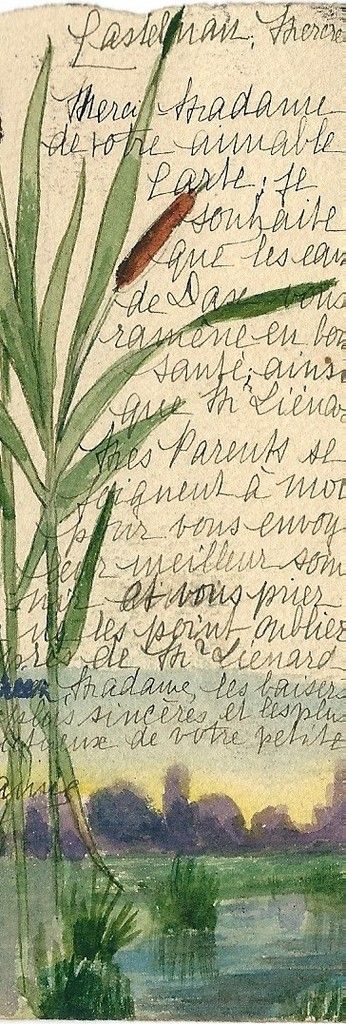 Castelnau, Mercre
Merci Madame
de votre aimable
Carte, je
souhaite
que les eau
de Dax vous
ramène en bon
santé, ainsi
que Mr Liénar
Mes Parents se
joignent à moi
pour vous envoy
leur meilleur som
nir et vous prier
ne les point oublier
près de Mr Liénard
Madame, les baisers
plus sincères et les plus
ctueux de votre petite